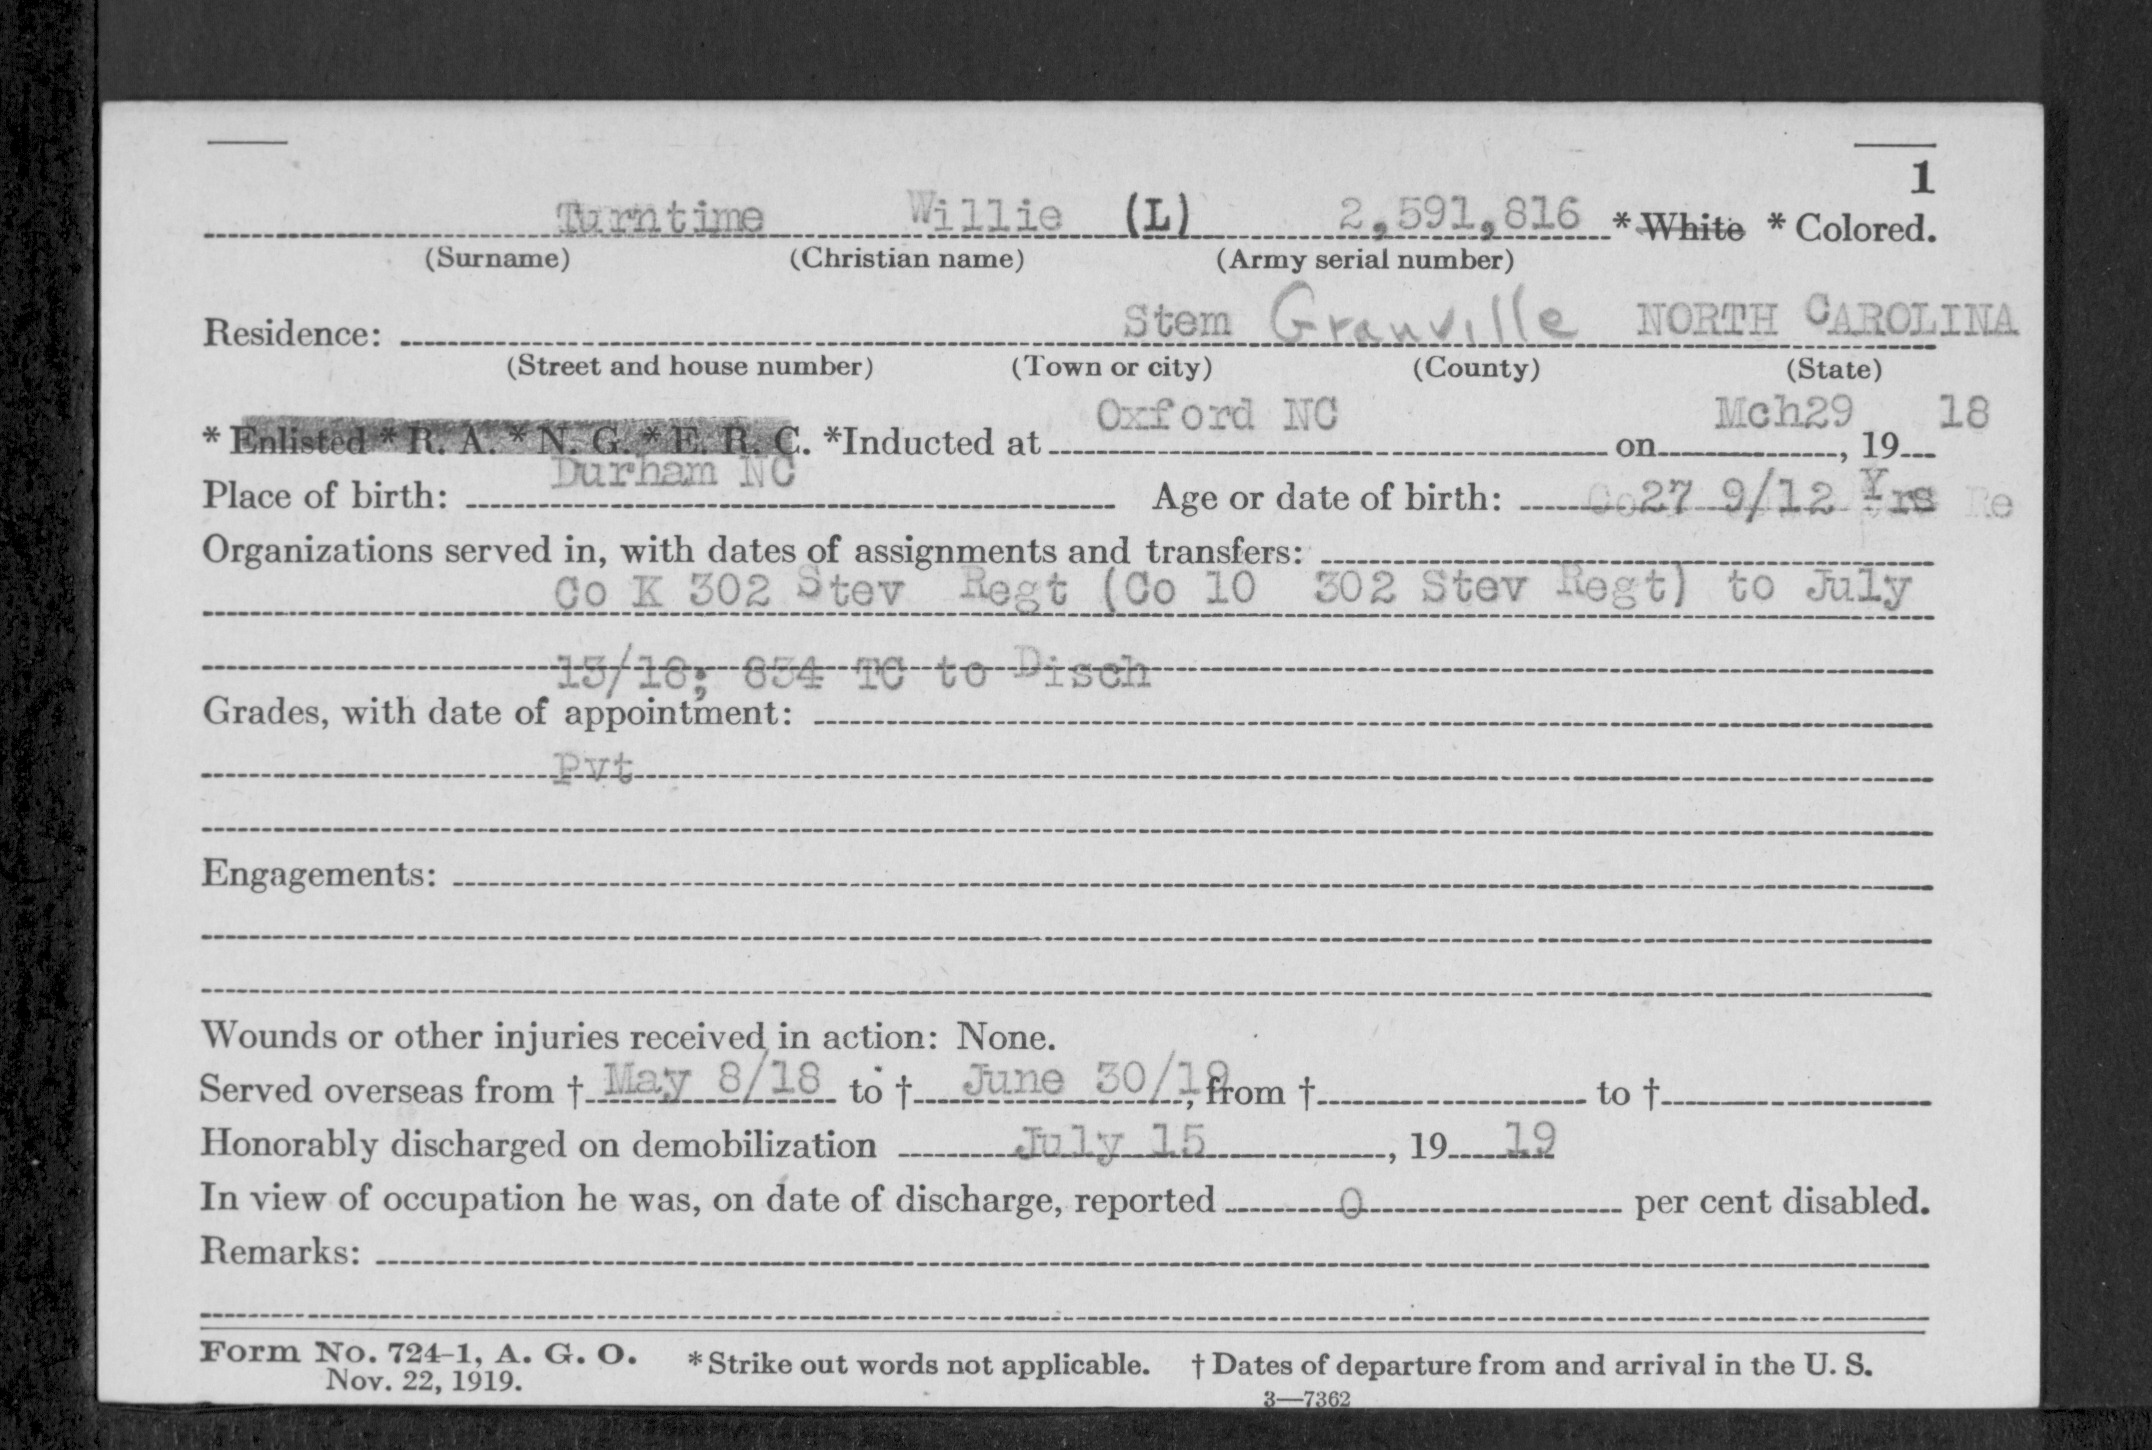 1
Turntime Willie (L) 2,591,816 * White * Colored.
(Surname) (Christian name) (Army serial number)
Residence: Stem Granville NORTH CAROLINA
(Street and house number) (Town or city) (County) (State)
* Enlisted * R. A. * N. G. * E. R. C. *Inducted at Oxford NC on Mch29, 19 18
Place of birth: Durham NC Age or date of birth: 27 9/12 Yrs
Organizations served in, with dates of assignments and transfers:
Co K 302 Stev Regt (Co 10 302 Stev Regt) to July
13/18; 834 TC to Disch
Grades, with date of appointment:
Pvt
Engagements:
Wounds or other injuries received in action: None.
Served overseas from † May 8/18 to † June 30/19, from † to †
Honorably discharged on demobilization July 15, 19 19
In view of occupation he was, on date of discharge, reported 0 per cent disabled.
Remarks:
Form No. 724-1, A. G. O. * Strike out words not applicable. † Dates of departure from and arrival in the U. S.
Nov. 22, 1919.
3—7362